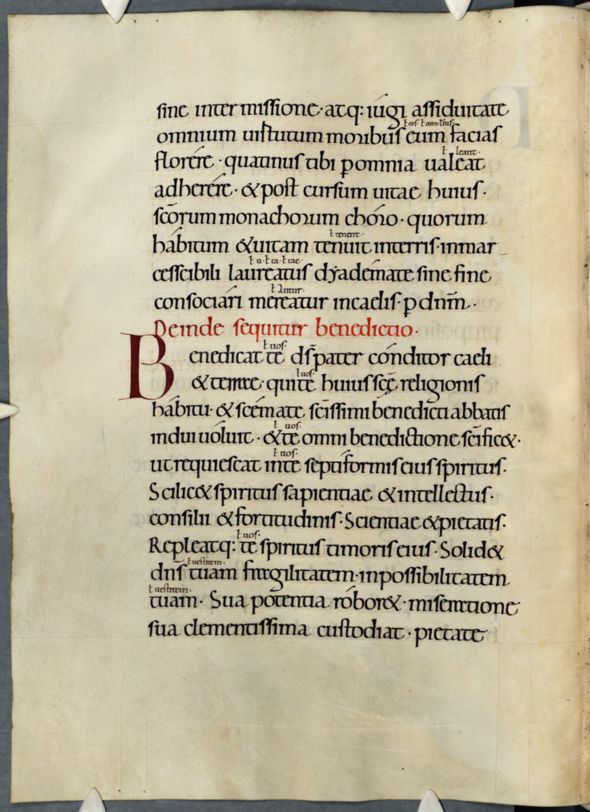 sine intermissione· atq: iugi assiduitate
omnium uirtutum moribus eum facias
florere· quatinus tibi p omnia ualeat
adherere· & post cursum uitae huius·
scōrum monachorum choro· quorum
habitum & uitam tenuit in terris· in mar
cessibili laureatus dyademate sine fine
consociari mereatur in caelis· p dnm̄·
Deinde sequitur benedictio·
Benedicat te ds̄ pater conditor caeli
& terrae· qui te huius scē religionis
habitu· & scemate sc̄issimi benedicti abbatis
indui uoluit· & te omni benedictione sc̄ific&·
ut requiescat in te septiformis eius spiritus·
Scilic& spiritus sapientiae & intellectus·
consilii & fortitudinis· Scientiae & pietatis·
Repleatq: te spiritus timoris eius· Solid&
dn̄s tuam fragilitatem· inpossibilitatem
tuam· Sua potentia robor&· miseratione
sua clementissima custodiat· pietate